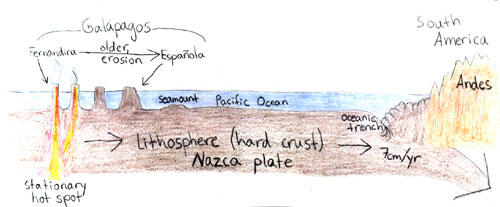 Galápagos
Fernandira
older,
erosion
Española
South
America
Andes
seamount
Pacific Ocean
oceanic
trench
Lithosphere (hard crust)
Nazca plate
7cm/yr
stationary
hot spot